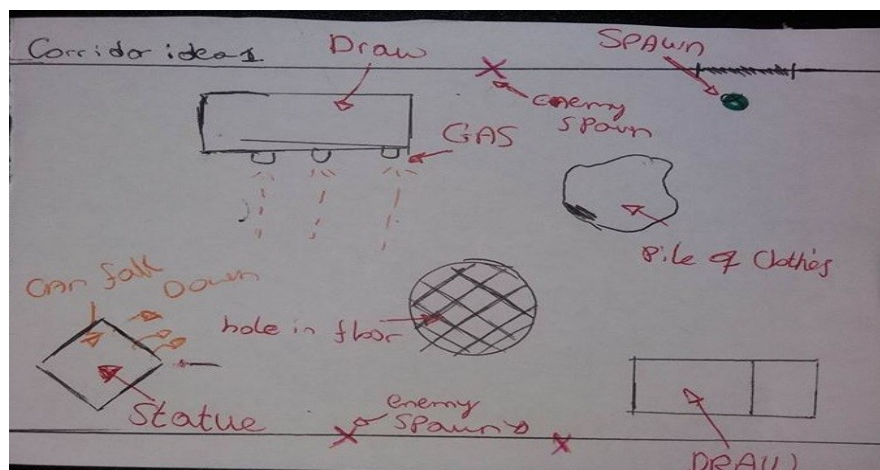 Corridor ideas
Draw
SPAWN
enemy
spawn
GAS
Pile of Clothes
Can fall Down
hole in floor
Statue
enemy
spawn
DRAW